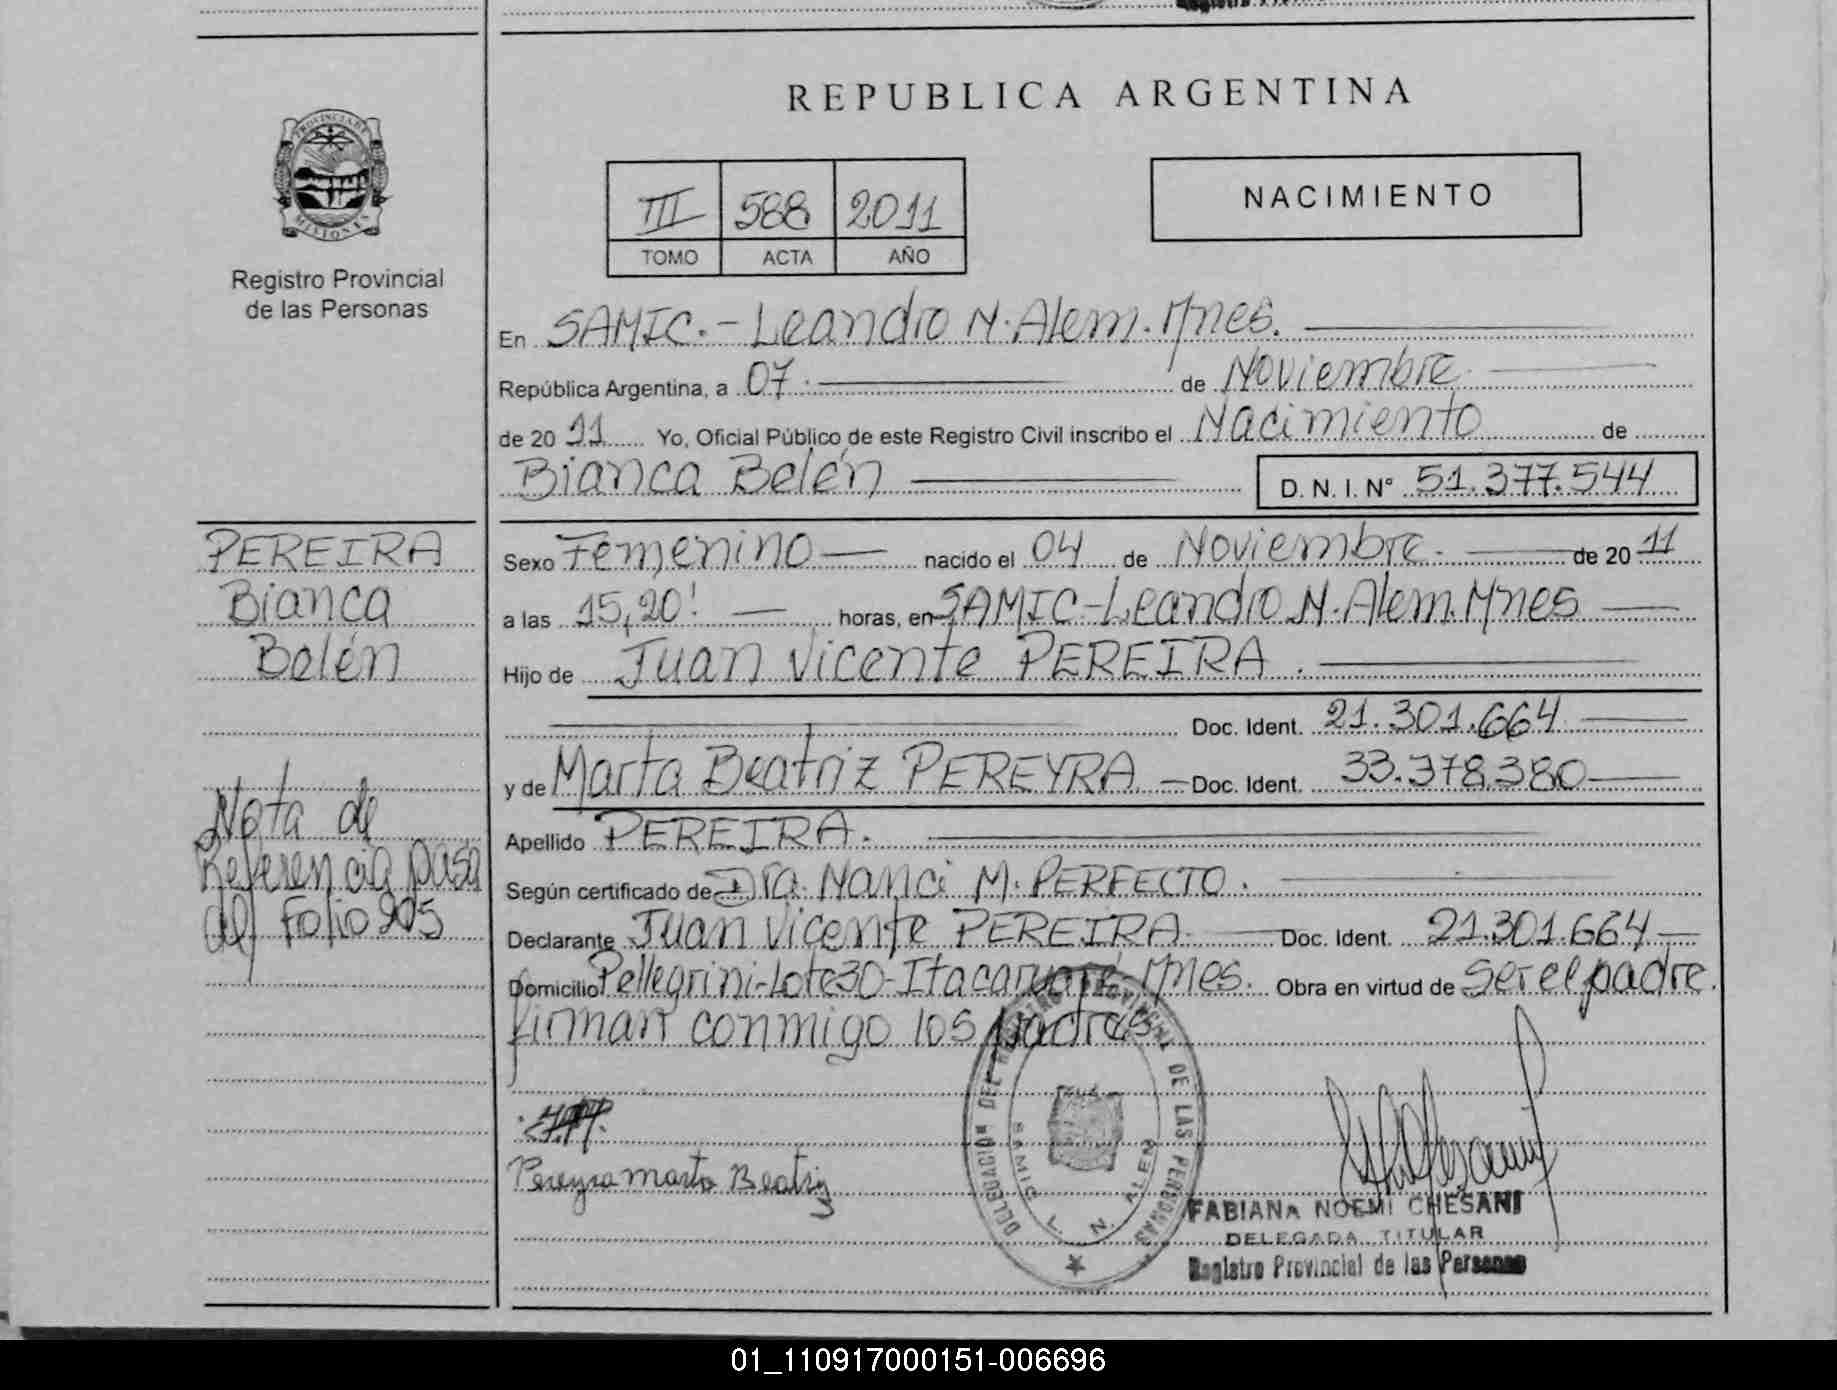 REPUBLICA ARGENTINA
PROVINCIA DE
MISIONES
Registro Provincial
de las Personas
III 588 2011
TOMO ACTA AÑO
NACIMIENTO
En SAMIC.-Leandro N. Alem. Mnes.
República Argentina, a 07. de Noviembre
de 20 11 Yo, Oficial Público de este Registro Civil inscribo el Nacimiento de
Bianca Belén D. N. I. N° 51.377.544
PEREIRA
Bianca
Belén
Nota de
Referencia pasa
al Folio 205
Sexo Femenino nacido el 04 de Noviembre. de 20 11
a las 15,20' horas, en SAMIC-Leandro N. Alem. Mnes
Hijo de Juan Vicente PEREIRA.
Doc. Ident. 21.301.664
y de Marta Beatriz PEREYRA. Doc. Ident. 33.378.380
Apellido PEREIRA.
Según certificado de Dra. Nanci M. PERFECTO.
Declarante Juan Vicente PEREIRA Doc. Ident. 21.301.664
Domicilio Pellegrini-Lote 30-Itacaruaré. Mnes. Obra en virtud de Ser el padre.
firman conmigo los padres
Pereyra marta Beatriz
DELEGACION DEL REGISTRO PROVINCIAL DE LAS PERSONAS
SAMIC L. N. ALEM
FABIANA NOEMI CHESANI
DELEGADA TITULAR
Registro Provincial de las Personas
01_110917000151-006696